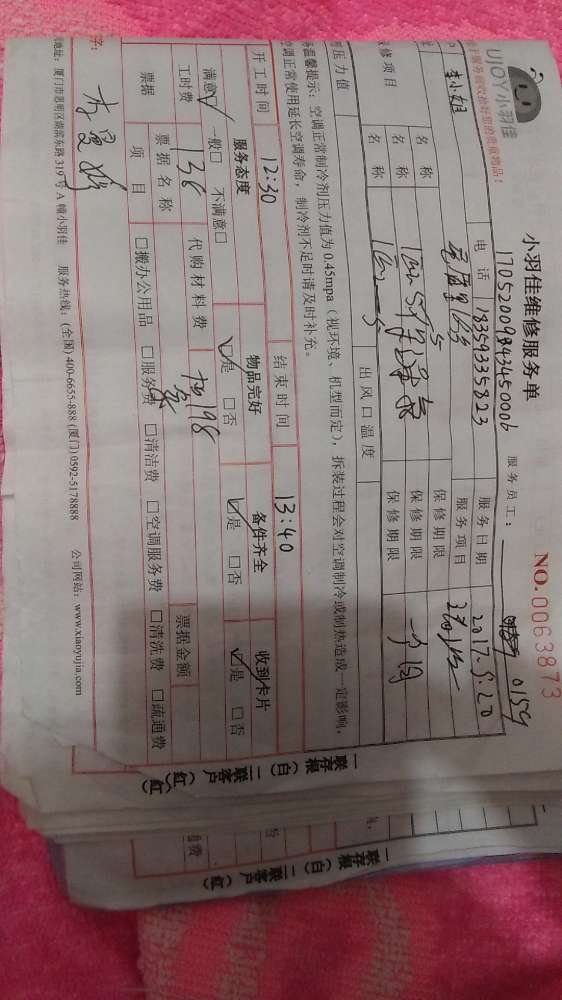 UJOY小羽佳
小羽佳维修服务单
NO.0063873
17052009843450006 服务员工： 0159
李小姐 电话 18359335823 服务日期 2017.5.20
服务项目
名称 保修期限
名称 保修期限 一个月
修项目 名称 保修期限
压力值 出风口温度
温馨提示：空调正常制冷剂压力值为0.45mpa（视环境、机型而定），拆装过程会对空调制冷或制热造成一定影响，
空调正常使用延长空调寿命，制冷剂不足时请及时补充。
开工时间 12:30 结束时间 13:40
服务态度 物品完好 备件齐全 收到卡片
满意☑ 一般□ 不满意□ ☑是 □否 ☑是 □否 ☑是 □否
工时费 136 代购材料费 198
票据 票据名称 票据金额
项目 □搬办公用品 □服务费 □清洁费 □空调服务费 □清洗费 □疏通费
字：
地址：厦门市思明区湖滨东路319号A幢小羽佳 服务热线：(全国) 400-6655-888 (厦门) 0592-5178888 公司网站：www.xiaoyujia.com
一联存根（白）二联客户（红）
一联存根（白）二联客户（红）